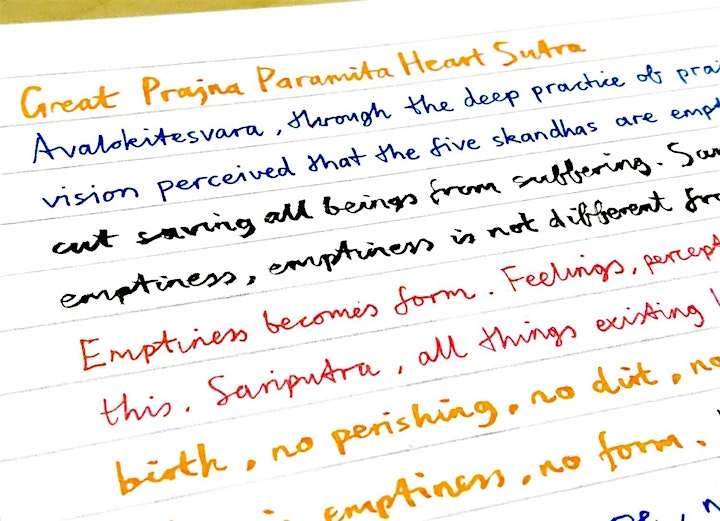 Great Prajna Paramita Heart Sutra
Avalokitesvara, through the deep practice of
vision perceived that the five skandhas are
cut saving all beings from suffering.
emptiness, emptiness is not different
Emptiness becomes form. Feelings,
this. Sariputra, all things existing
birth, no perishing, no dirt, no
emptiness, no form.